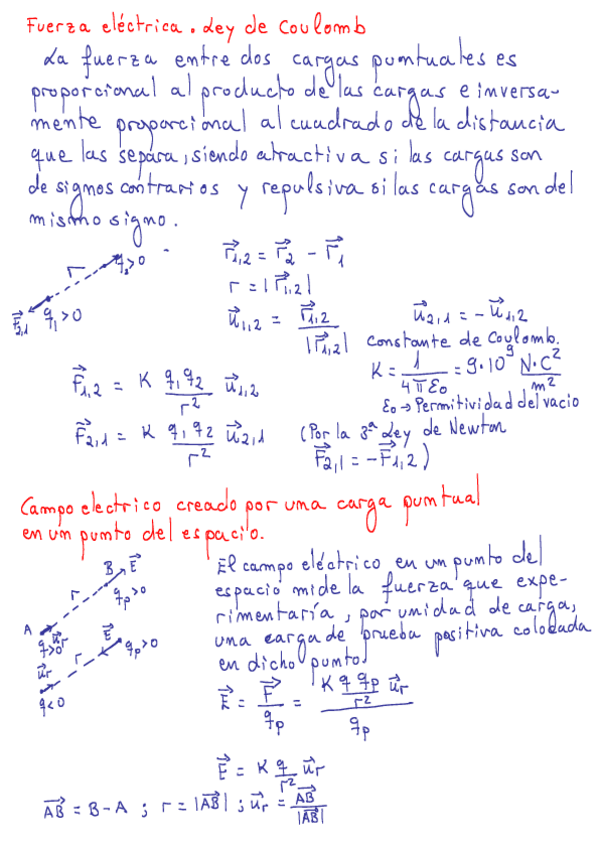 Fuerza eléctrica. Ley de Coulomb
La fuerza entre dos cargas puntuales es
proporcional al producto de las cargas e inversa-
mente proporcional al cuadrado de la distancia
que las separa, siendo atractiva si las cargas son
de signos contrarios y repulsiva si las cargas son del
mismo signo.
r q₂>0
F⃗₂,₁ q₁>0
r⃗₁,₂ = r⃗₂ - r⃗₁
r = |r⃗₁,₂|
u⃗₁,₂ = r⃗₁,₂ / |r⃗₁,₂| u⃗₂,₁ = - u⃗₁,₂
constante de Coulomb.
K = 1 / 4πε₀ = 9·10⁹ N·C² / m²
ε₀ → Permitividad del vacio
F⃗₁,₂ = K q₁q₂ / r² u⃗₁,₂
F⃗₂,₁ = K q₁q₂ / r² u⃗₂,₁ (Por la 3ª Ley de Newton
F⃗₂,₁ = -F⃗₁,₂)
Campo electrico creado por una carga puntual
en un punto del espacio.
B E⃗
r qₚ>0
A q>0 u⃗ᵣ
E⃗ qₚ>0
u⃗ᵣ r
q<0
El campo eléctrico en un punto del
espacio mide la fuerza que expe-
rimentaría, por unidad de carga,
una carga de prueba positiva colocada
en dicho punto
E⃗ = F⃗ / qₚ = (K q qₚ / r² u⃗ᵣ) / qₚ
E⃗ = K q / r² u⃗ᵣ
AB⃗ = B-A ; r = |AB⃗| ; u⃗ᵣ = AB⃗ / |AB⃗|